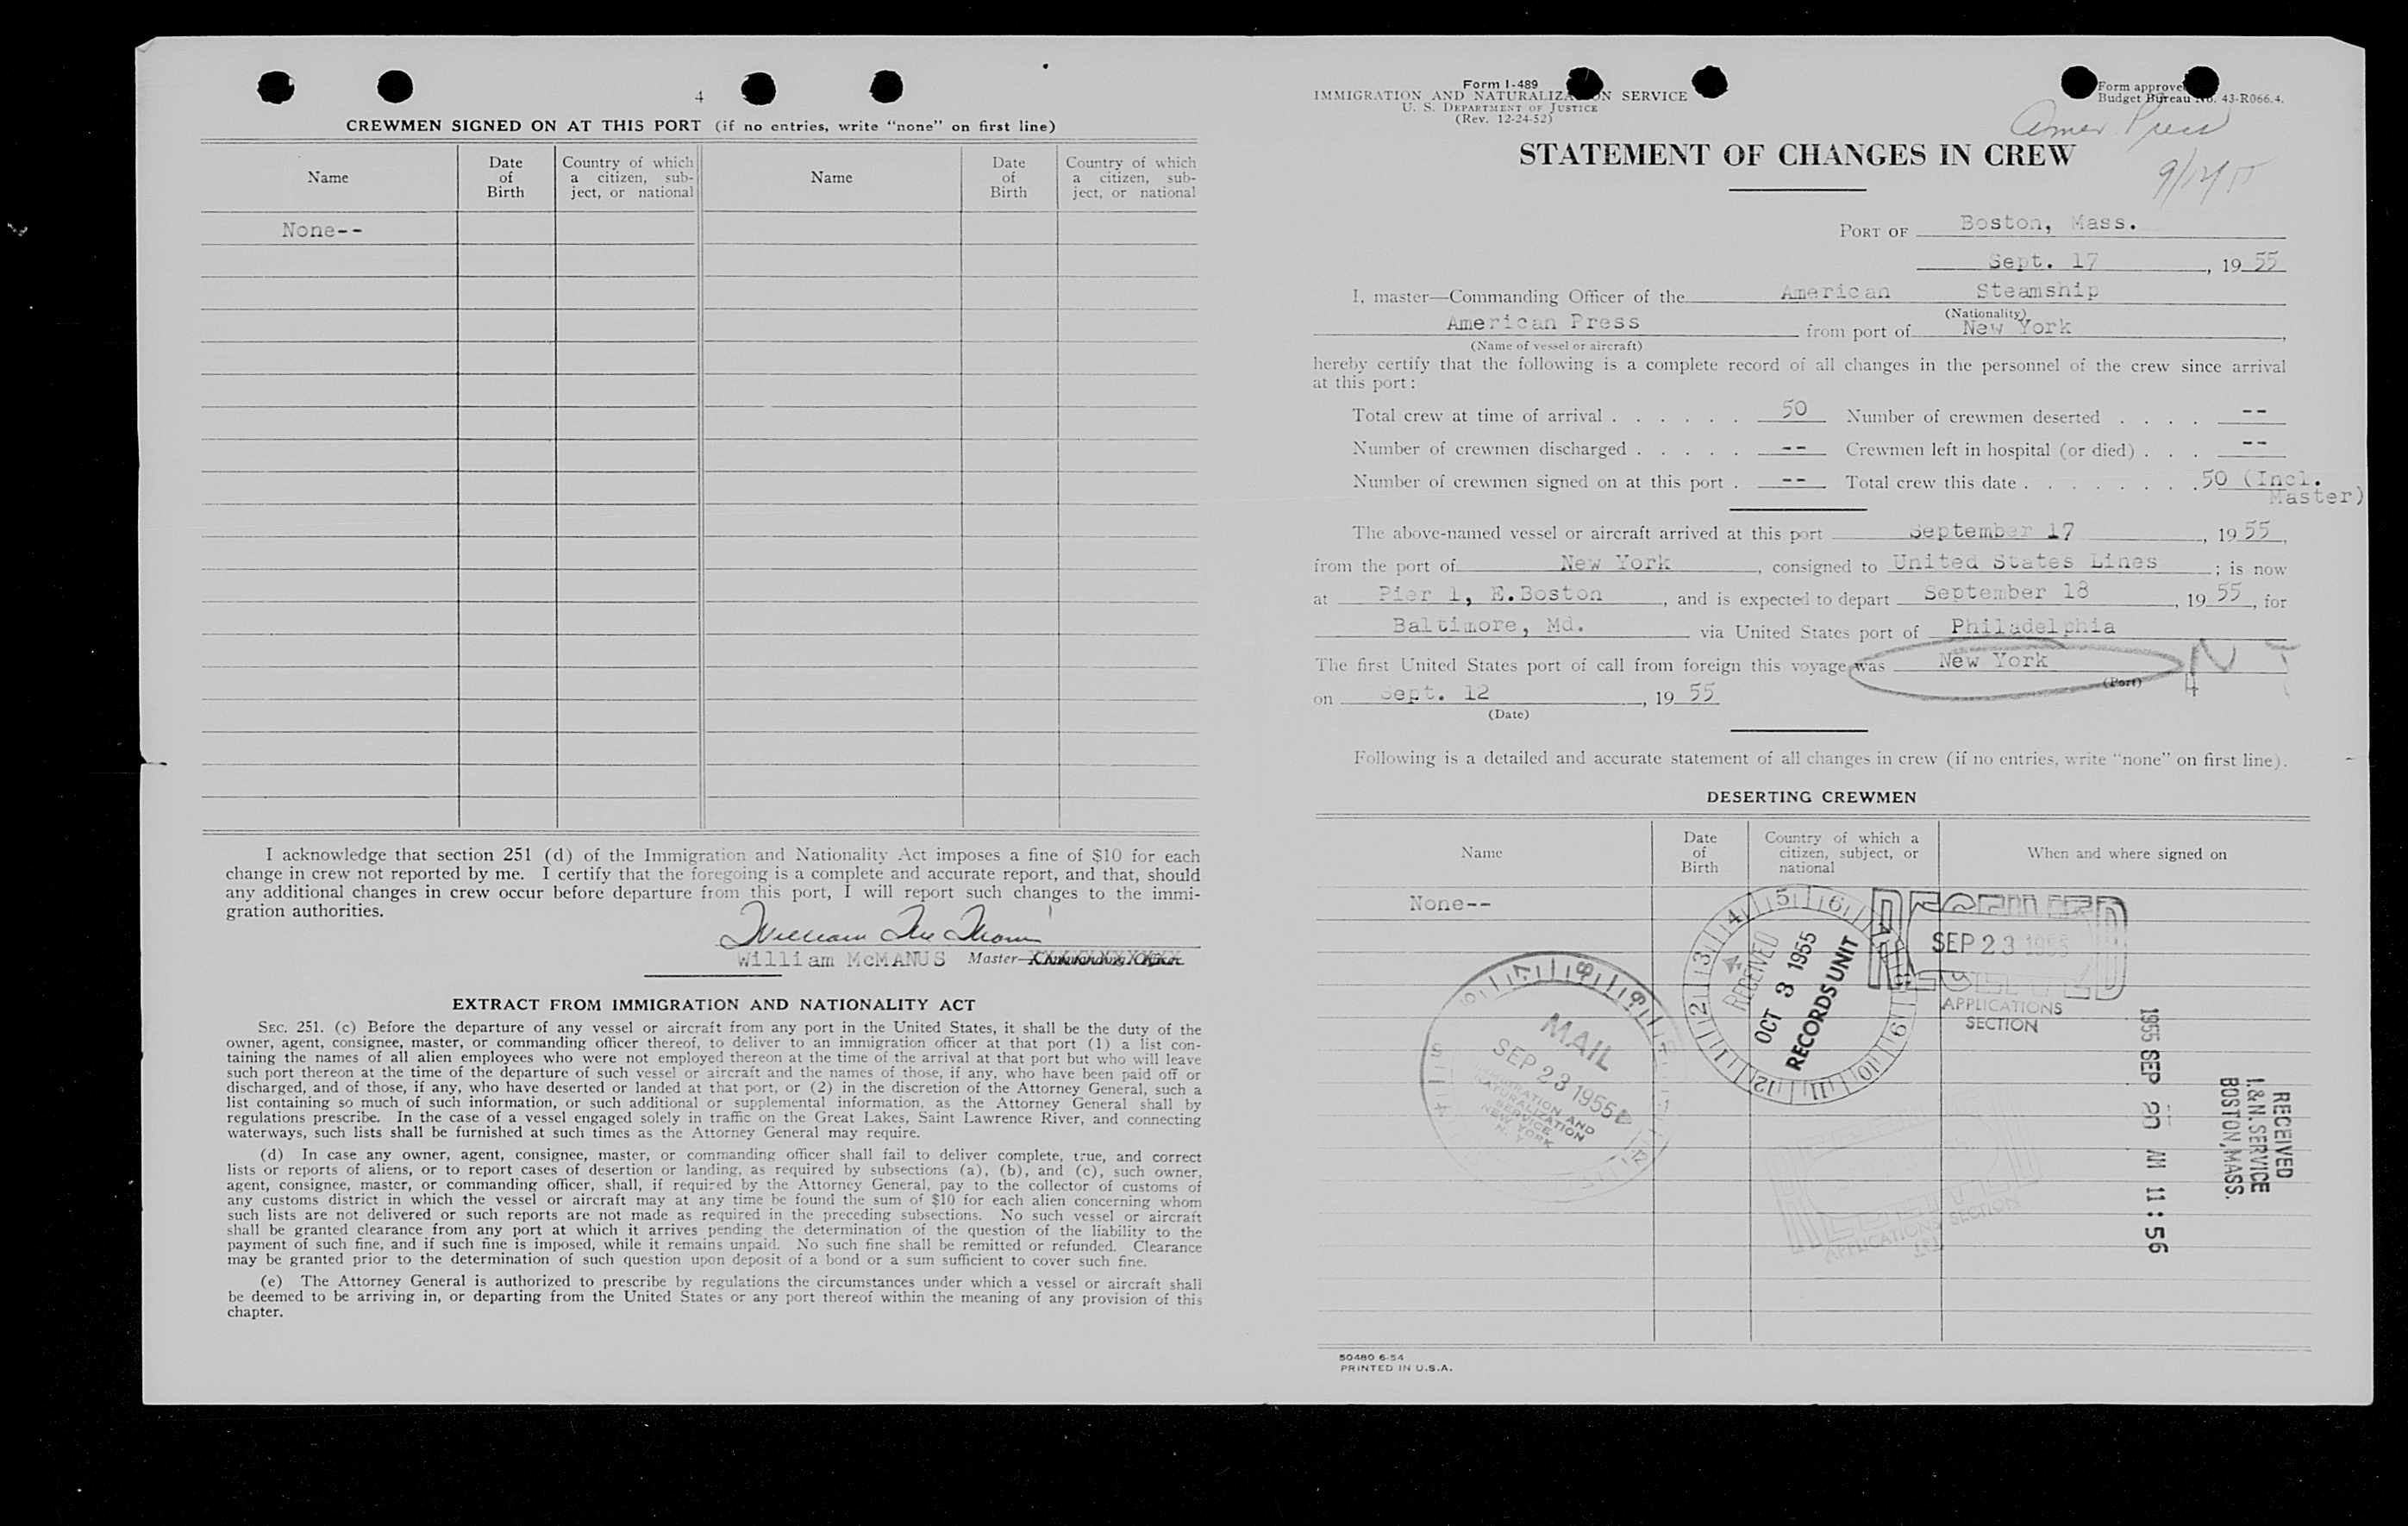 4
CREWMEN SIGNED ON AT THIS PORT (if no entries, write "none" on first line)
Name
Date of Birth
Country of which a citizen, subject, or national
Name
Date of Birth
Country of which a citizen, subject, or national
None--
I acknowledge that section 251 (d) of the Immigration and Nationality Act imposes a fine of $10 for each
change in crew not reported by me. I certify that the foregoing is a complete and accurate report, and that, should
any additional changes in crew occur before departure from this port, I will report such changes to the immi-
gration authorities.
William McManus
William McMANUS Master—Commanding Officer
EXTRACT FROM IMMIGRATION AND NATIONALITY ACT
SEC. 251. (c) Before the departure of any vessel or aircraft from any port in the United States, it shall be the duty of the
owner, agent, consignee, master, or commanding officer thereof, to deliver to an immigration officer at that port (1) a list con-
taining the names of all alien employees who were not employed thereon at the time of the arrival at that port but who will leave
such port thereon at the time of the departure of such vessel or aircraft and the names of those, if any, who have been paid off or
discharged, and of those, if any, who have deserted or landed at that port, or (2) in the discretion of the Attorney General, such a
list containing so much of such information, or such additional or supplemental information, as the Attorney General shall by
regulations prescribe. In the case of a vessel engaged solely in traffic on the Great Lakes, Saint Lawrence River, and connecting
waterways, such lists shall be furnished at such times as the Attorney General may require.
(d) In case any owner, agent, consignee, master, or commanding officer shall fail to deliver complete, true, and correct
lists or reports of aliens, or to report cases of desertion or landing, as required by subsections (a), (b), and (c), such owner,
agent, consignee, master, or commanding officer, shall, if required by the Attorney General, pay to the collector of customs of
any customs district in which the vessel or aircraft may at any time be found the sum of $10 for each alien concerning whom
such lists are not delivered or such reports are not made as required in the preceding subsections. No such vessel or aircraft
shall be granted clearance from any port at which it arrives pending the determination of the question of the liability to the
payment of such fine, and if such fine is imposed, while it remains unpaid. No such fine shall be remitted or refunded. Clearance
may be granted prior to the determination of such question upon deposit of a bond or a sum sufficient to cover such fine.
(e) The Attorney General is authorized to prescribe by regulations the circumstances under which a vessel or aircraft shall
be deemed to be arriving in, or departing from the United States or any port thereof within the meaning of any provision of this
chapter.
Form I-489
IMMIGRATION AND NATURALIZATION SERVICE
U. S. DEPARTMENT OF JUSTICE
(Rev. 12-24-52)
Form approved
Budget Bureau No. 43-R066.4.
Amer Press
STATEMENT OF CHANGES IN CREW
PORT OF Boston, Mass.
Sept. 17, 19 55
I, master—Commanding Officer of the American Steamship
(Nationality)
American Press from port of New York,
(Name of vessel or aircraft)
hereby certify that the following is a complete record of all changes in the personnel of the crew since arrival
at this port:
Total crew at time of arrival . . . . . . 50 Number of crewmen deserted . . . . --
Number of crewmen discharged . . . . . -- Crewmen left in hospital (or died) . . . --
Number of crewmen signed on at this port . -- Total crew this date . . . . . . . . 50 (Incl.
Master)
The above-named vessel or aircraft arrived at this port September 17, 19 55,
from the port of New York, consigned to United States Lines; is now
at Pier 1, E.Boston, and is expected to depart September 18, 19 55, for
Baltimore, Md. via United States port of Philadelphia
The first United States port of call from foreign this voyage was New York
(Port)
on Sept. 12, 19 55
(Date)
Following is a detailed and accurate statement of all changes in crew (if no entries, write "none" on first line).
DESERTING CREWMEN
Name
Date of Birth
Country of which a citizen, subject, or national
When and where signed on
None--
RECEIVED
OCT 3 1955
RECORDS UNIT
RECEIVED
SEP 23 1955
RECEIVED
APPLICATIONS
SECTION
MAIL
SEP 23 1955
IMMIGRATION AND
NATURALIZATION
SERVICE
NEW YORK
N. Y.
RECEIVED
APPLICATIONS SECTION
RECEIVED
I.&N. SERVICE
BOSTON, MASS.
1955 SEP 20 AM 11:56
50480 6-54
PRINTED IN U.S.A.